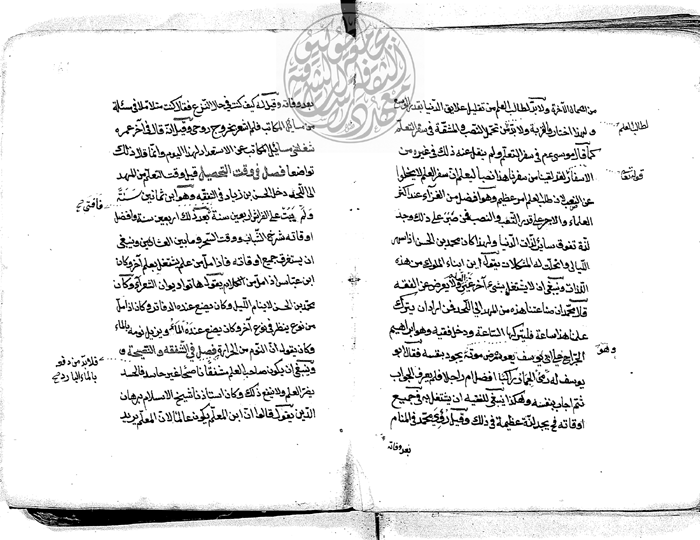 من اعمال الآخرة ولا بد لطالب العلم من تقليل علايق الدنيا بقدر الوسع
ولهذا اختاروا الغربة ولا بد من تحمل النصب والمشقة في سفر التعلم
كما قال موسى عم في سفر التعلم ولم ينقل عنه ذلك في غيره من
الاسفار لقد لقينا من سفرنا هذا نصبا ليعلم ان سفر العلم لا يخلوا
عن التعب لان طلب العلم امر عظيم وهو افضل من الغزاء عند اكثر
العلماء والاجر على قدر التعب والنصب فمن صبر على ذلك وجد
لذة تفوق سائر لذات الدنيا ولهذا كان محمد بن الحسن اذا سهر
الليالي وانحلت له المشكلات يقول اين ابناء الملوك من هذه
اللذات وينبغي ان لا يشتغل بشيء آخر غير العلم ولا يعرض عن الفقه
قال محمد ان صناعتنا هذه من المهد الى اللحد فمن اراد ان يترك
علمنا هذا ساعة فليتركه الساعة ودخل فقيه وهو ابراهيم
الجراح على ابي يوسف يعوده في مرض موته وهو يجود بنفسه فقال ابو
يوسف له رمي الجمار راكبا افضل ام راجلا فلم يعرف الجواب
ثم اجاب بنفسه وهكذا ينبغي للفقيه ان يشتغل به في جميع
اوقاته فح يجد لذة عظيمة في ذلك وقيل رؤي محمد في المنام
بعد وفاته
لطالب العلم
وهو
بعد وفاته وقيل له كيف كنت في حال النزع فقال كنت متاملا في مسئلة
من مسائل المكاتب فلم اشعر بخروج روحي وقيل انه قال في آخر عمره
شغلني مسائل المكاتب عن الاستعداد لهذا اليوم وانما قال ذلك
تواضعا فصل في وقت التحصيل قيل وقت التعلم من المهد
الى اللحد دخل الحسن بن زياد في الفقه وهو ابن ثمانين سنة
ولم يبت على الفراش اربعين سنة بعد ذلك اربعين سنة وافضل
اوقاته شرخ الشباب ووقت السحر وما بين العشائين وينبغي
ان يستغرق جميع اوقاته فاذا مل من علم يشتغل بعلم آخر وكان
ابن عباس اذا مل من الكلام يقول هاتوا ديوان الشعراء وكان
محمد بن الحسن لا ينام الليل وكان يضع عنده الدفاتر وكان اذا مل
من نوع ينظر في نوع آخر وكان يضع عنده الماء ويزيل نومه بالماء
وكان يقول ان النوم من الحرارة فصل في الشفقة والنصيحة
وينبغي ان يكون صاحب العلم مشفقا ناصحا غير حاسد فالحسد
يضر العلم ولا ينفع ذلك وكان استاذنا شيخ الاسلام برهان
الدين يقول قالوا ان ابن المعلم يكون عالما لان المعلم يريد
فافتى
فلا بد من دفعه
بالماء البارد